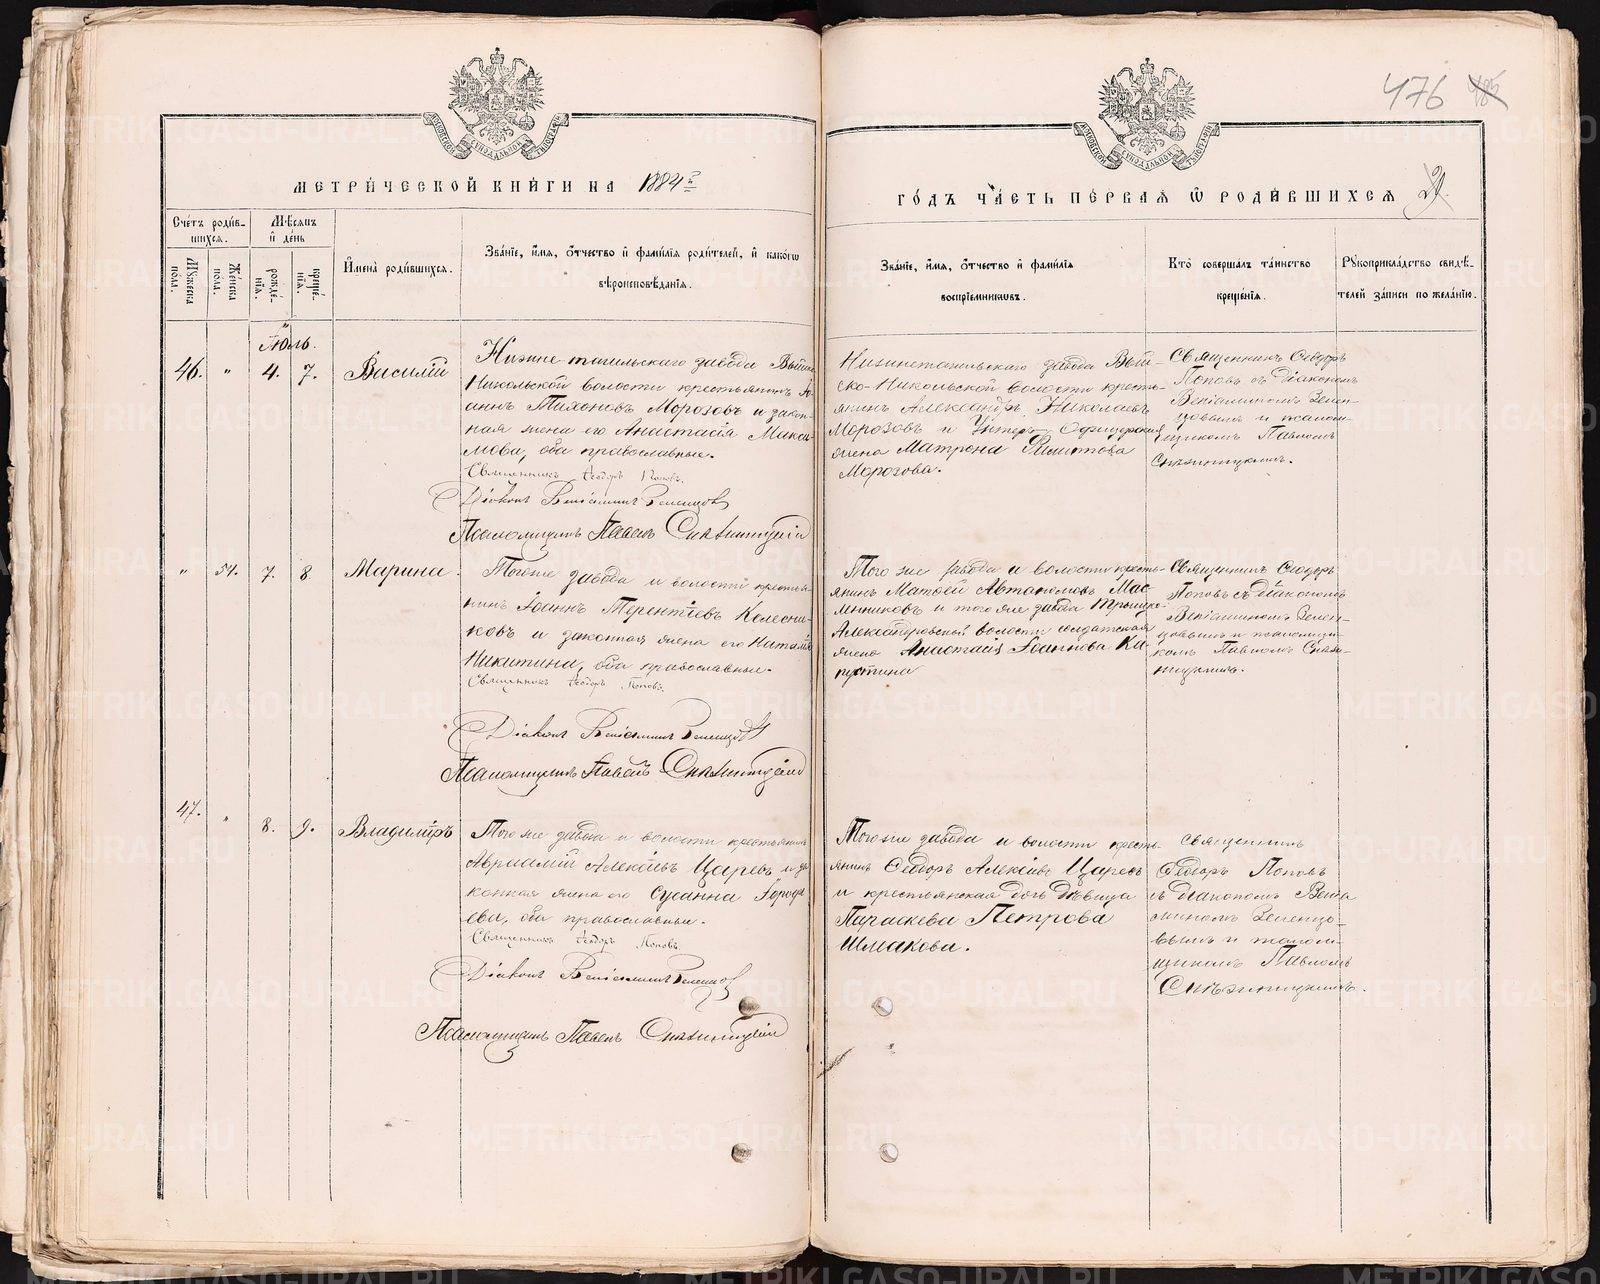 476 485
МЕТРИЧЕСКОЙ КНИГИ НА 1884 г.
ГОДЪ ЧАСТЬ ПЕРВАЯ Ѡ РОДИВШИХСЯ
МОСКОВСКОЙ СѴНОДАЛЬНОЙ ТИПОГРАФІИ
МОСКОВСКОЙ СѴНОДАЛЬНОЙ ТИПОГРАФІИ
Счетъ родив-
шихся.
Мѣсяцъ
и день
Мужеска пола.
Женска пола.
рожде-
нія.
креще-
нія.
Имена родившихся.
Званіе, имя, отчество и фамилія родителей, и какого
вѣроисповѣданія.
Званіе, имя, отчество и фамилія
воспріемниковъ.
Кто совершалъ таинство
крещенія.
Рукоприкладство свидѣ-
телей записи по желанію.
Іюль.
46. " 4. 7. Василій
Нижне тагильскаго завода Выйско
Никольской волости крестьянинъ Іо-
аннъ Тихоновъ Морозовъ и закон-
ная жена его Анастасія Макси-
мова, оба православные.
Священникъ Ѳеодоръ Поповъ.
Діаконъ Веніаминъ Зеленцовъ
Псаломщикъ Павелъ Снѣжницкій
Нижнетагильскаго завода Вый-
ско-Никольской волости кресть-
янинъ Александръ Николаевъ
Морозовъ и Унтеръ-Офицерская
жена Матрона Филитова
Морозова.
Священникъ Ѳеодоръ
Поповъ съ діакономъ
Веніаминомъ Зелен-
цовымъ и псалом-
щикомъ Павломъ
Снѣжницкимъ.
" 51. 7. 8. Марина.
Того же завода и волости крестья-
нинъ Іоаннъ Терентіевъ Колесни-
ковъ и законная жена его Наталія
Никитина, оба православные.
Священникъ Ѳеодоръ Поповъ.
Діаконъ Веніаминъ Зеленцовъ
Псаломщикъ Павелъ Снѣжницкій
Того же завода и волости кресть-
янинъ Матѳей Автономовъ Мас-
ленниковъ и того же завода Троицко-
Александровской волости солдатская
жена Анастасія Іоаннова Ка-
пустина
Священникъ Ѳеодоръ
Поповъ съ діакономъ
Веніаминомъ Зелен-
цовымъ и псаломщи-
комъ Павломъ Снѣж-
ницкимъ.
47. " 8. 9. Владиміръ
Того же завода и волости крестьянинъ
Авраамій Алексѣевъ Царевъ и за-
конная жена его Сусанна Горди
ева, оба православные.
Священникъ Ѳеодоръ Поповъ
Діаконъ Веніаминъ Зеленцовъ
Псаломщикъ Павелъ Снѣжницкій
Того же завода и волости кресть-
янинъ Ѳеодоръ Алексѣевъ Царевъ
и крестьянская дочь дѣвица
Параскева Петрова
Шмакова.
Священникъ
Ѳеодоръ Поповъ
съ діакономъ Венiа
миномъ Зеленцо-
вымъ и псалом-
щикомъ Павломъ
Снѣжницкимъ.
METRIKI.GASO-URAL.RU